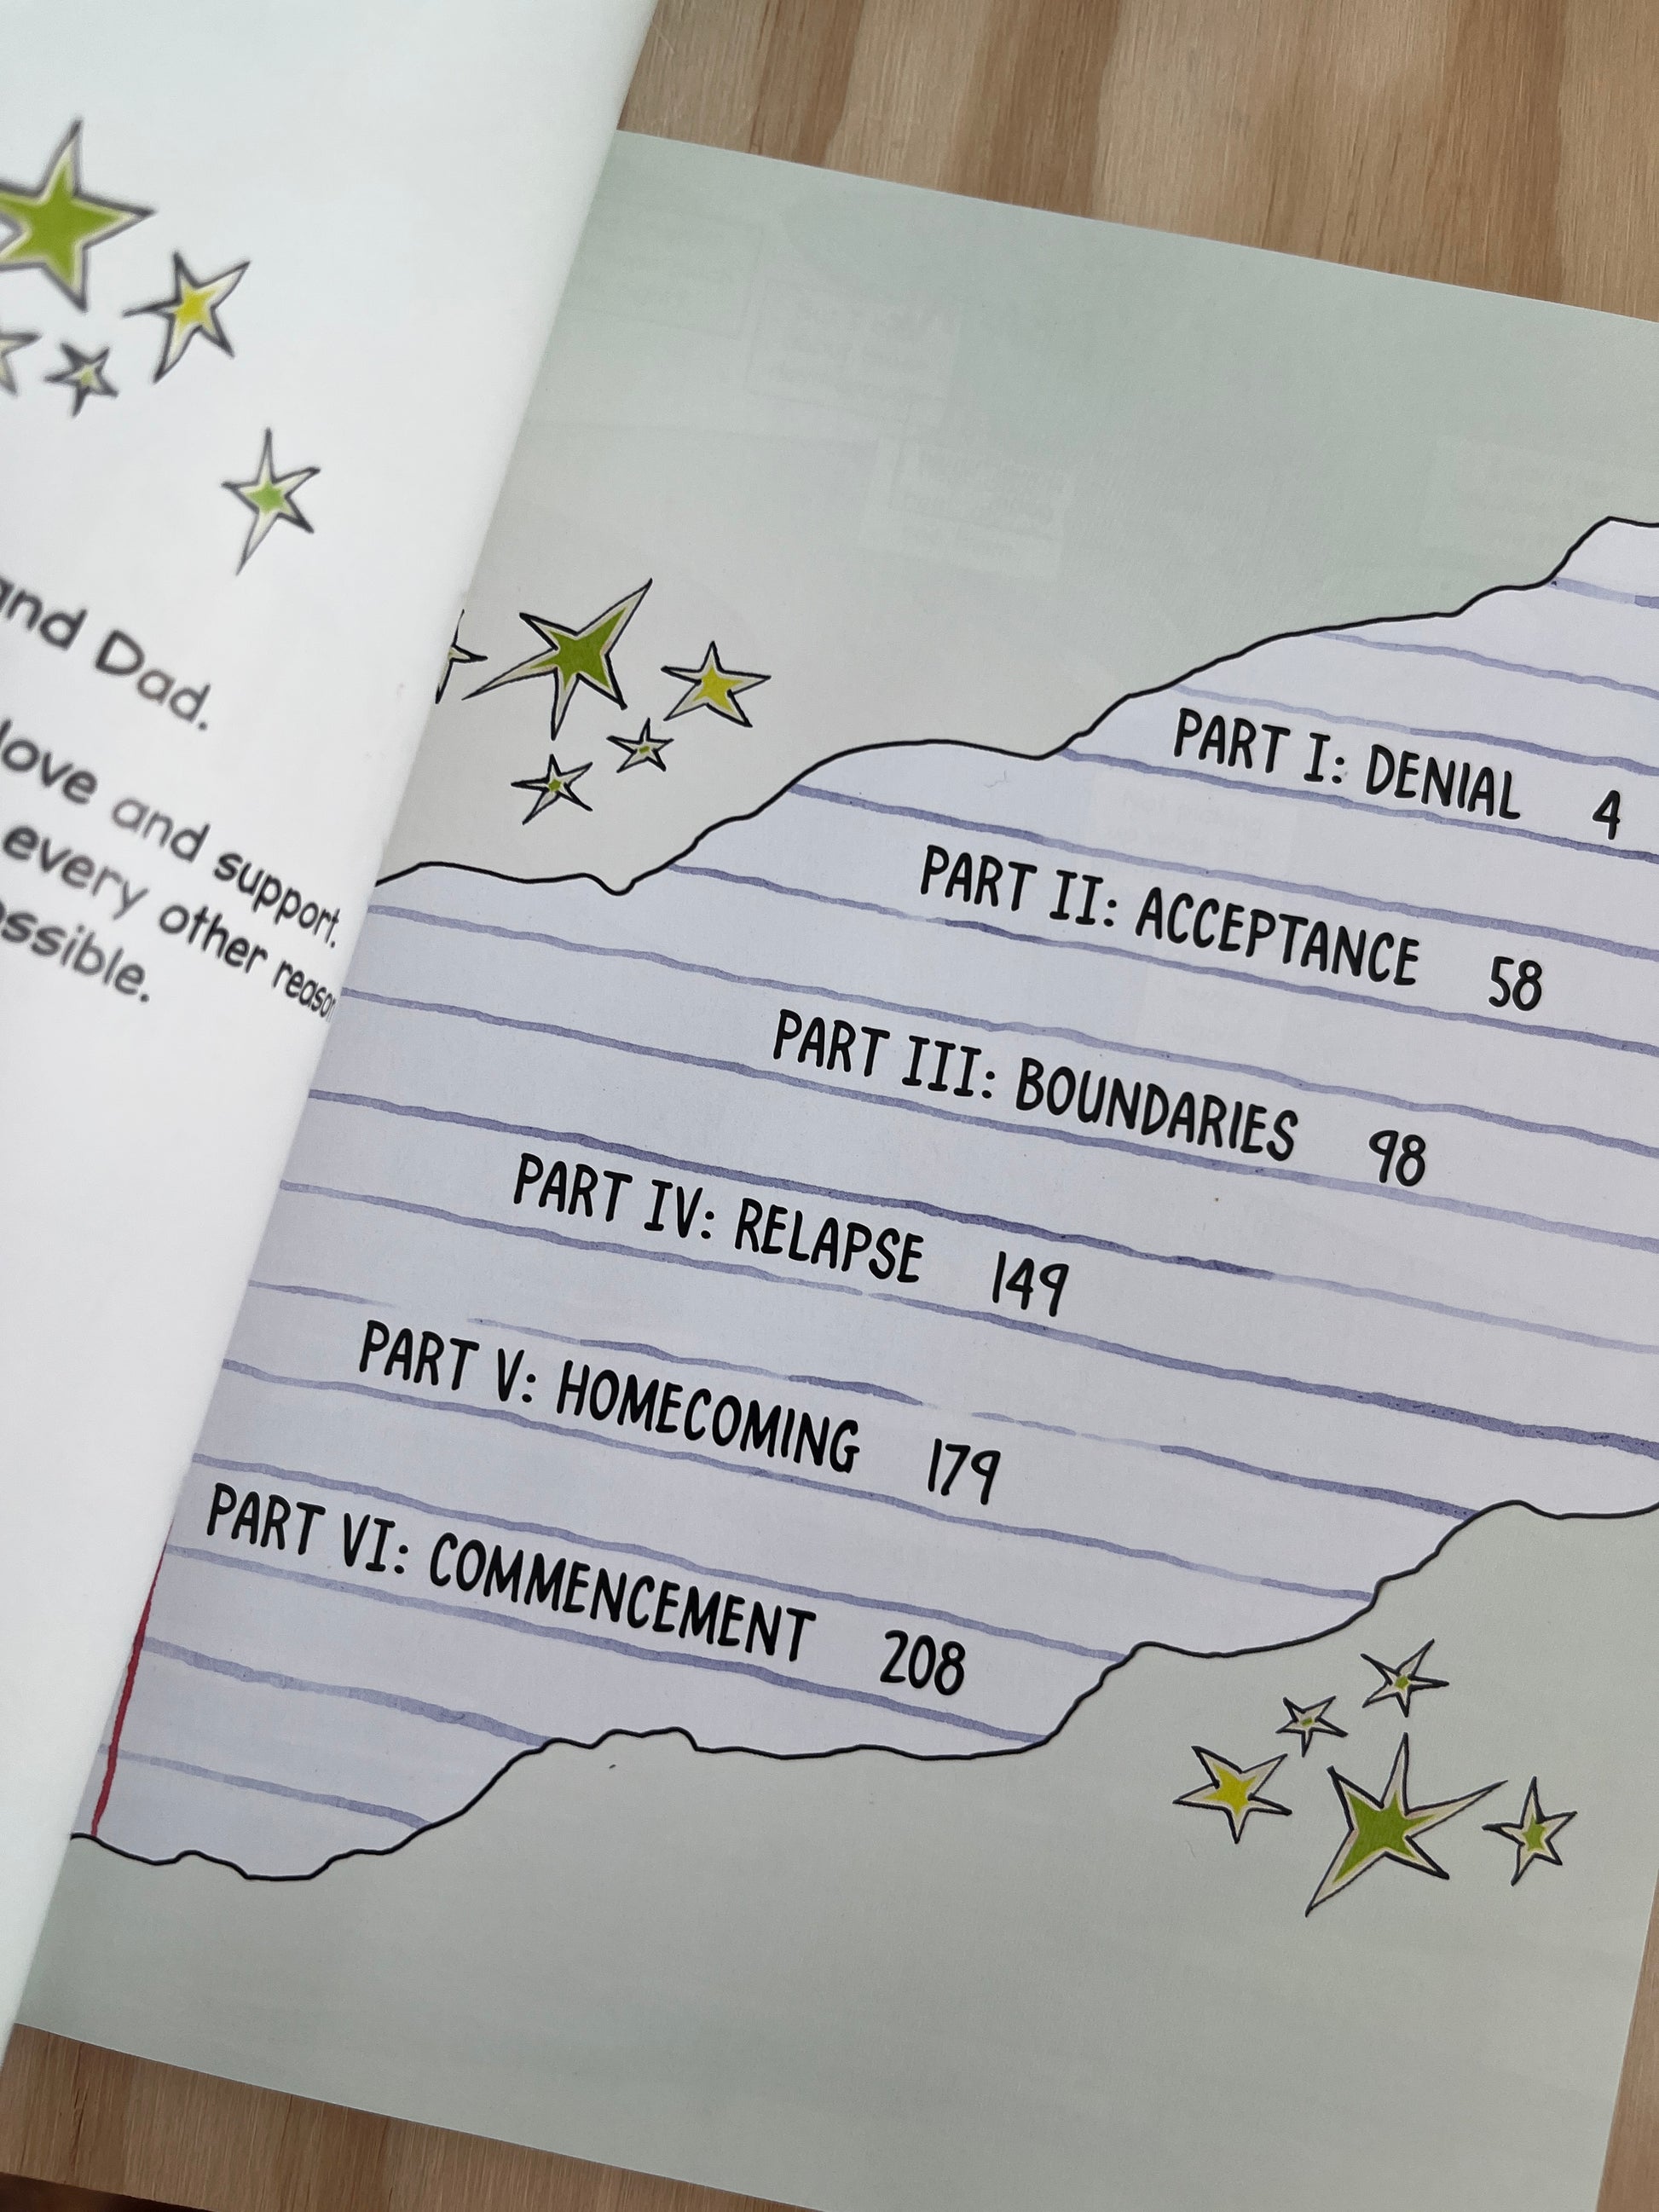 and Dad.
love and support.
every other reason
PART I: DENIAL 4
PART II: ACCEPTANCE 58
PART III: BOUNDARIES 98
PART IV: RELAPSE 149
PART V: HOMECOMING 179
PART VI: COMMENCEMENT 208